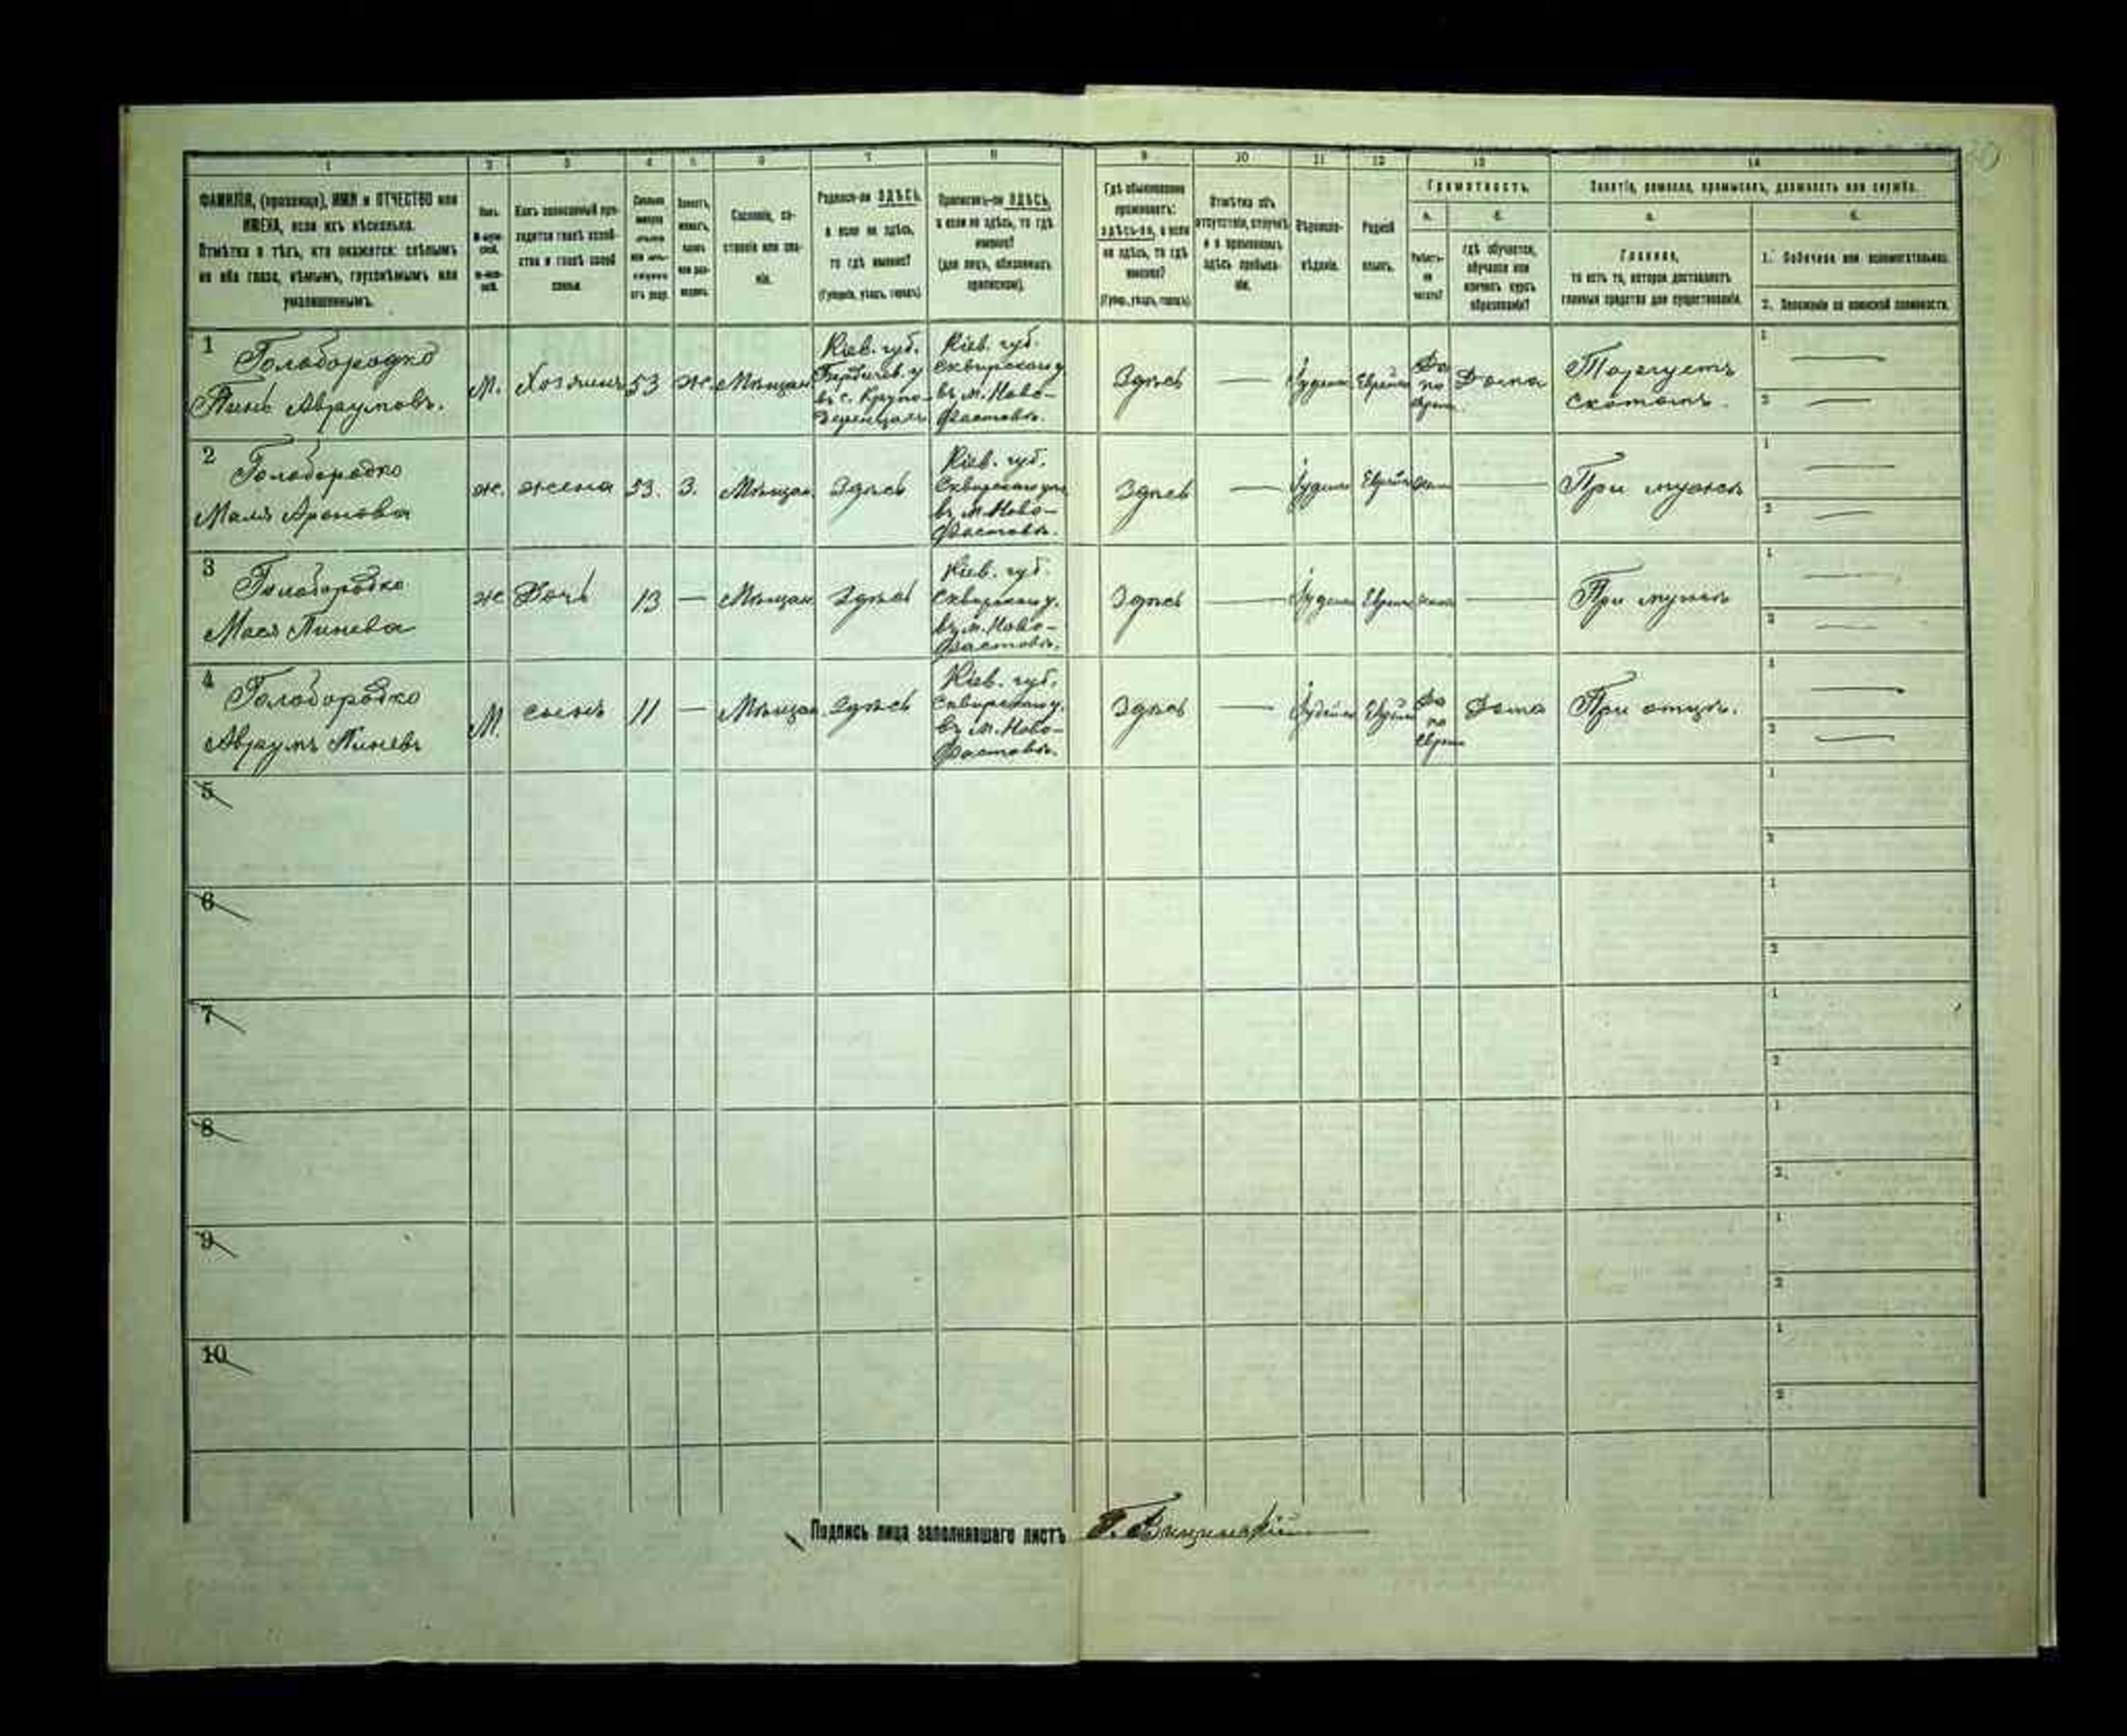 1 2 3 4 5 6 7 8 9 10 11 12 13 14
ФАМИЛІЯ, (прозвище), ИМЯ и ОТЧЕСТВО или
ИМЕНА, если ихъ нѣсколько.
Отмѣтка о тѣхъ, кто окажется: слѣпымъ
на оба глаза, нѣмымъ, глухонѣмымъ или
умалишеннымъ.
Полъ.
М-муж-
ской.
ж-жен-
скій.
Какъ записанный при-
ходится главѣ хозяй-
ства и главѣ своей
семьи
Сколько
минуло
лѣтъ
или мѣ-
сяцевъ
отъ роду.
Холостъ,
женатъ,
вдовъ
или раз-
веденъ.
Сословіе, со-
стояніе или зва-
ніе.
Родился-ли ЗДѢСЬ,
а если не здѣсь,
то гдѣ именно?
(Губернія, уѣздъ, городъ)
Приписанъ-ли ЗДѢСЬ,
а если не здѣсь, то гдѣ
именно?
(для лицъ, обязанныхъ
припискою).
Гдѣ обыкновенно
проживаетъ:
здѣсь-ли, а если
не здѣсь, то гдѣ
именно?
(Губер., уѣздъ, городъ)
Отмѣтка объ
отсутствіи, отлучкѣ
и о временномъ
здѣсь пребыва-
ніи.
Вѣроиспо-
вѣданіе.
Родной
языкъ.
Грамотность.
а.
Умѣетъ-
ли
читать?
б.
гдѣ обучается,
обучался или
кончилъ курсъ
образованія?
Занятіе, ремесло, промыселъ, должность или служба.
а.
Главное,
то есть то, которое доставляетъ
главныя средства для существованія.
б.
1. Побочное или вспомогательное.
2. Положеніе по воинской повинности.
1 Голобородко
Пинь Аврумовъ.
М. Хозяинъ 53 ж. Мѣщан
Кіев. губ.
Бердичев. у
въ с.
Кіев. губ.
Сквирскаго у
въ м. Ново-
Фастовѣ.
Здѣсь — Іудейск Еврейск
Да
по
Евр
Дома
Торгуетъ
скотомъ.
1 —
2 —
2 Голобородко
Маля Аронова
ж. жена 53. З. Мѣщан. Здѣсь
Кіев. губ.
Сквирскаго у
въ м. Ново-
Фастовѣ.
Здѣсь — Іудейск Еврейск — При мужѣ
1 —
2 —
3 Голобородко
Мася Пинева
ж Дочь 13 — Мѣщан Здѣсь
Кіев. губ.
Сквирскаго у.
въ м. Ново-
Фастовѣ.
Здѣсь — Іудейск Еврейск — При мужѣ
1 —
2 —
4 Голобородко
Аврумъ Пиневъ
М. сынъ 11 — Мѣщан Здѣсь
Кіев. губ.
Сквирскаго у.
въ м. Ново-
Фастовѣ.
Здѣсь — Іудейск Еврейск
Да
по
Евр
Дома При отцѣ.
1 —
2 —
5
1
2
6
1
2
7
1
2
8
1
2.
9
1
2
10
1
2
Подпись лица заполнявшаго листъ